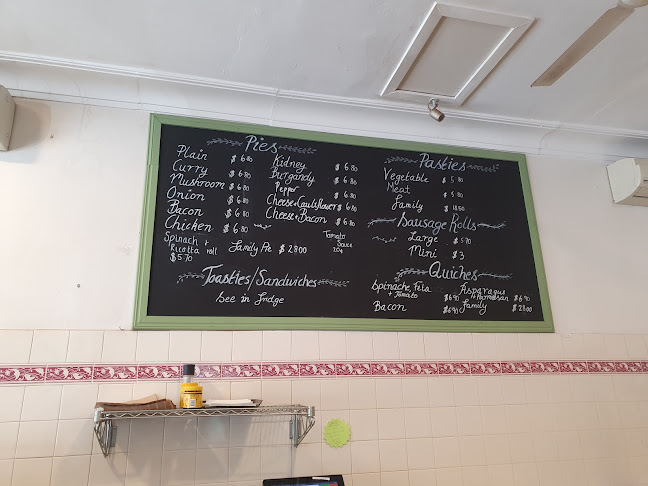 Pies
Plain $ 6.80
Curry $ 6.80
Mushroom $ 6.80
Onion $ 6.80
Bacon $ 6.80
Chicken
Spinach +
Ricotta roll
$5.70
Kidney $ 6.80
Burgandy $ 6.80
Pepper $ 6.80
Cheese+Cauliflower $ 6.80
Cheese+Bacon $ 6.80
Family Pie $ 28.00
Tomato
Sauce
20¢
Toasties/Sandwiches
See in Fridge
Pasties
Vegetable $ 5.80
Meat $ 5.80
Family $ 18.50
Sausage Rolls
Large $ 5.70
Mini $ 3
Quiches
Spinache, Feta
+ Tomato $6.90
Bacon $6.90
Asparagus
+ Parmesan $ 6.90
Family $ 28.00